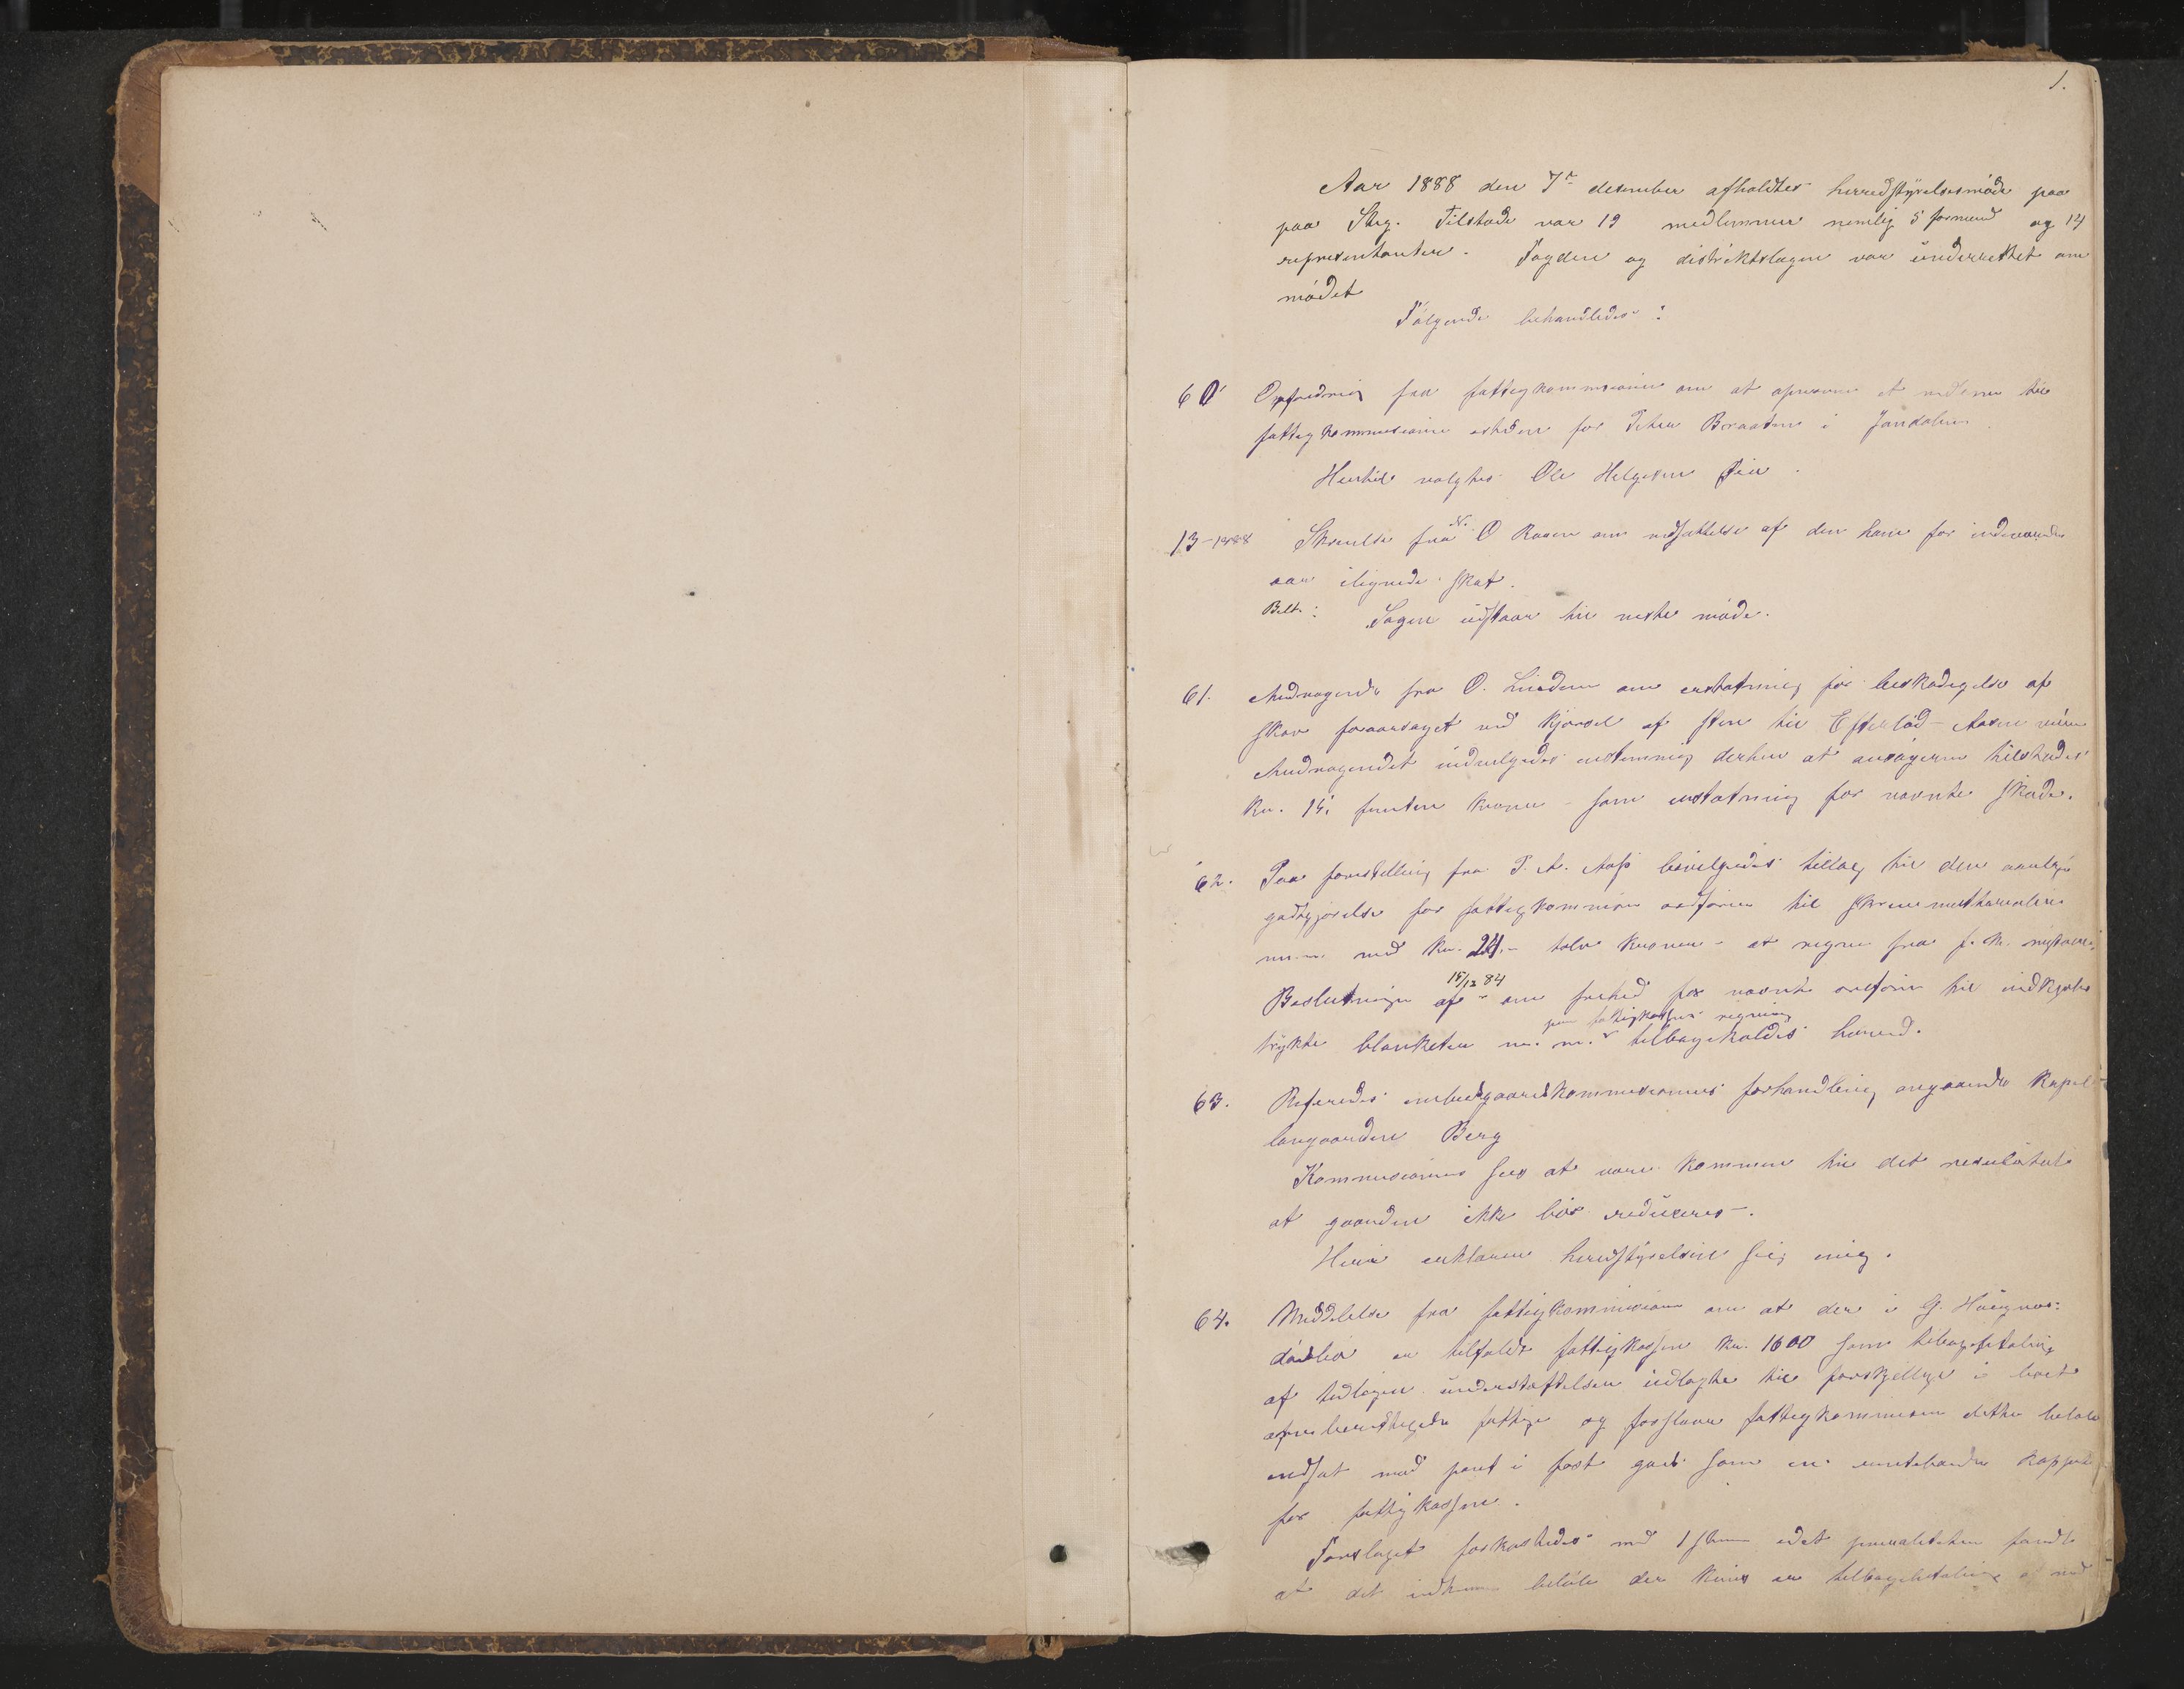 1.
Aar 1888 den 7de desember afholdtes herredstyrelsesmöde paa
paa Skeg. Tilstede var 19 medlemmer nemlig 5 formænd og 14
representanter. Fogden og distriktslægen var underrettet om
mödet
Følgende behandledes:
60 Opfordring fra fattigkommisionen om at opnevne et medlem til
fattigkommisionen istedenfor Peter Braaten i Jondalen
Hertil valgtes Ole Helgesen
13-1888 Skrivelse fra N. O Raaen om nedsettelse af den ham for indeværende
aar ilignede skat.
Besl.: Sagen udstaar til neste möde.
61. Andragende fra O. Linden om erstatning for beskadigelse af
skov foraarsaget ved kjørsel af sten til Efteløt-Aasen
Andragendet indvilgedes enstemmig derhen at ansøgeren tilstedes
Kr. 15, femten kroner - som erstatning for nævnte skade.
62. Paa forestilling fra T. A. Aass bevilgedes tillæg til den aarlige
godtgjørelse for fattigkommisionens ordfører til skrivematerialier
m.m. med Kr. 24.- tolv kroner - at regne fra f. k. nytaar.
Beslutningen af 15/12 84 om frihed for nævnte ordfører til indkjøb
trykte blanketter m. m. paa fattigkassens regning tilbagekaldes herved.
63. Refereredes embedsgaardskommisionens forhandling angaaende kapel-
langaarden Berg
Kommisionen sees at være kommen til det resultat
at gaarden ikke bør reduceres.
Heri erklærer herredstyrelsen sig enig.
64. Meddelelse fra fattigkommisionen om at der i G.
dödsbo er tilfaldt fattigkassen Kr. 1600 som tilbagebetaling
af tidligere understøttelser udlagte til forskjellige i boet
arveberettigede fattige og forslaar fattigkommisionen dette beløb
indsat mod pant i fast gods som en rentebærende kapital
for fattigkassen.
Forslaget forkastedes med 1 stemme idet pluraliteten fandt
at det indkomne beløb der kun er tilbagebetaling af